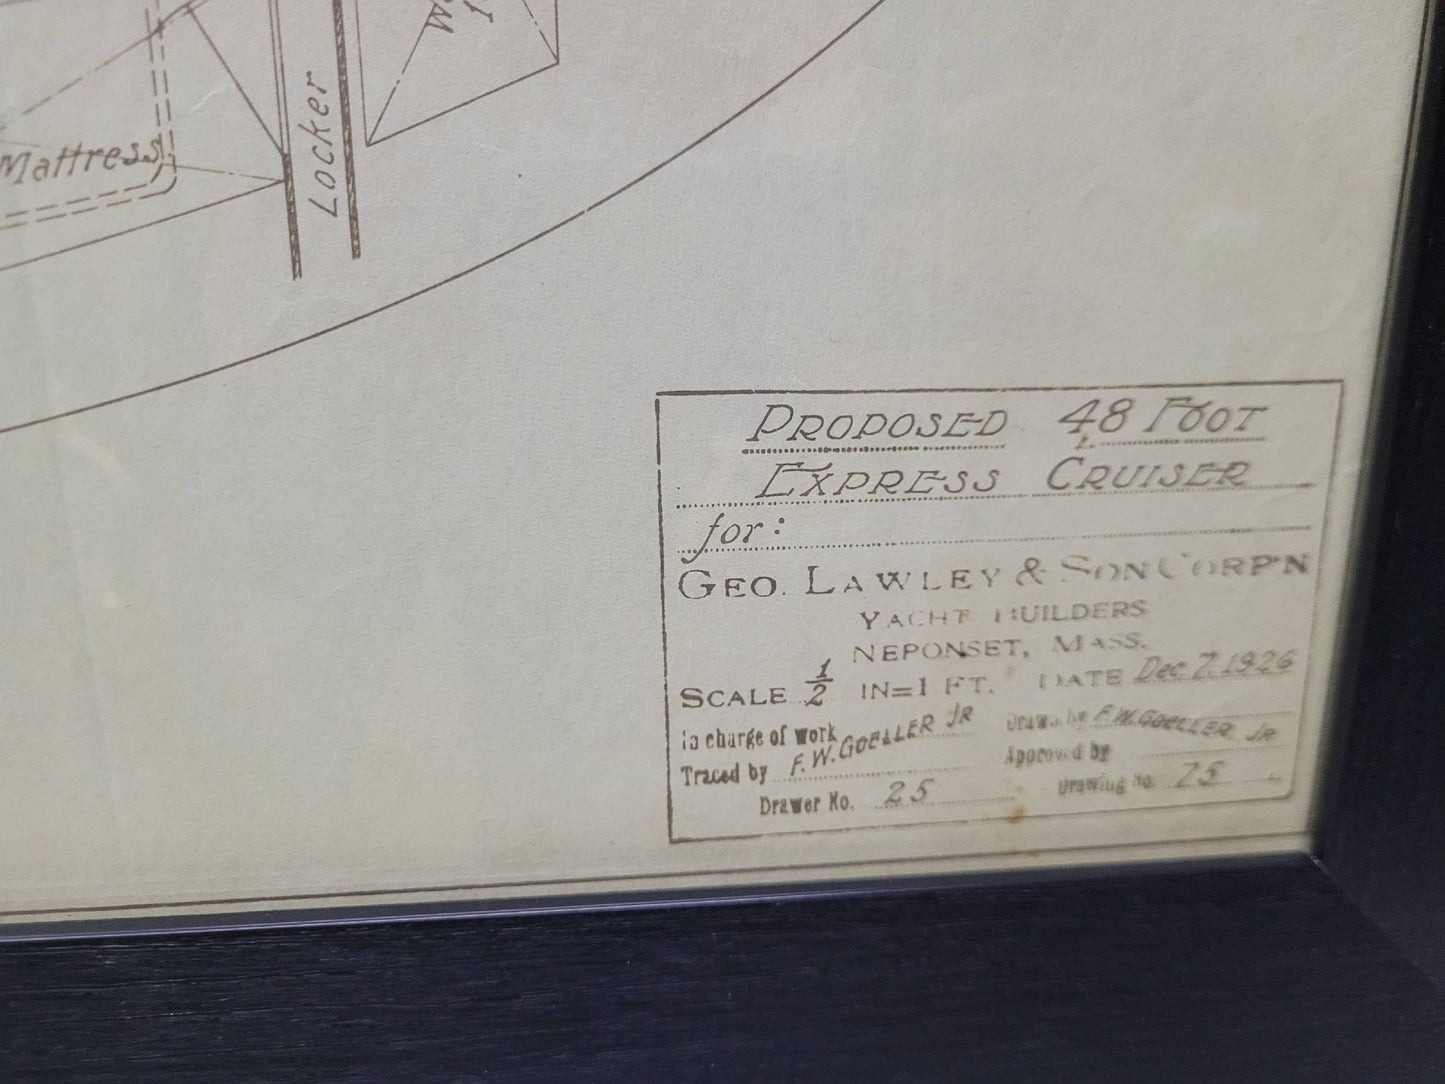 Mattress
Locker
PROPOSED 48 FOOT
EXPRESS CRUISER
for:
GEO. LAWLEY & SON CORP'N
YACHT BUILDERS
NEPONSET, MASS.
SCALE 1/2 IN=1 FT. DATE Dec 7, 1926
In charge of work F. W. GOELLER JR Drawn by F. W. GOELLER, JR
Traced by Approved by
Drawer No. 25 Drawing No.